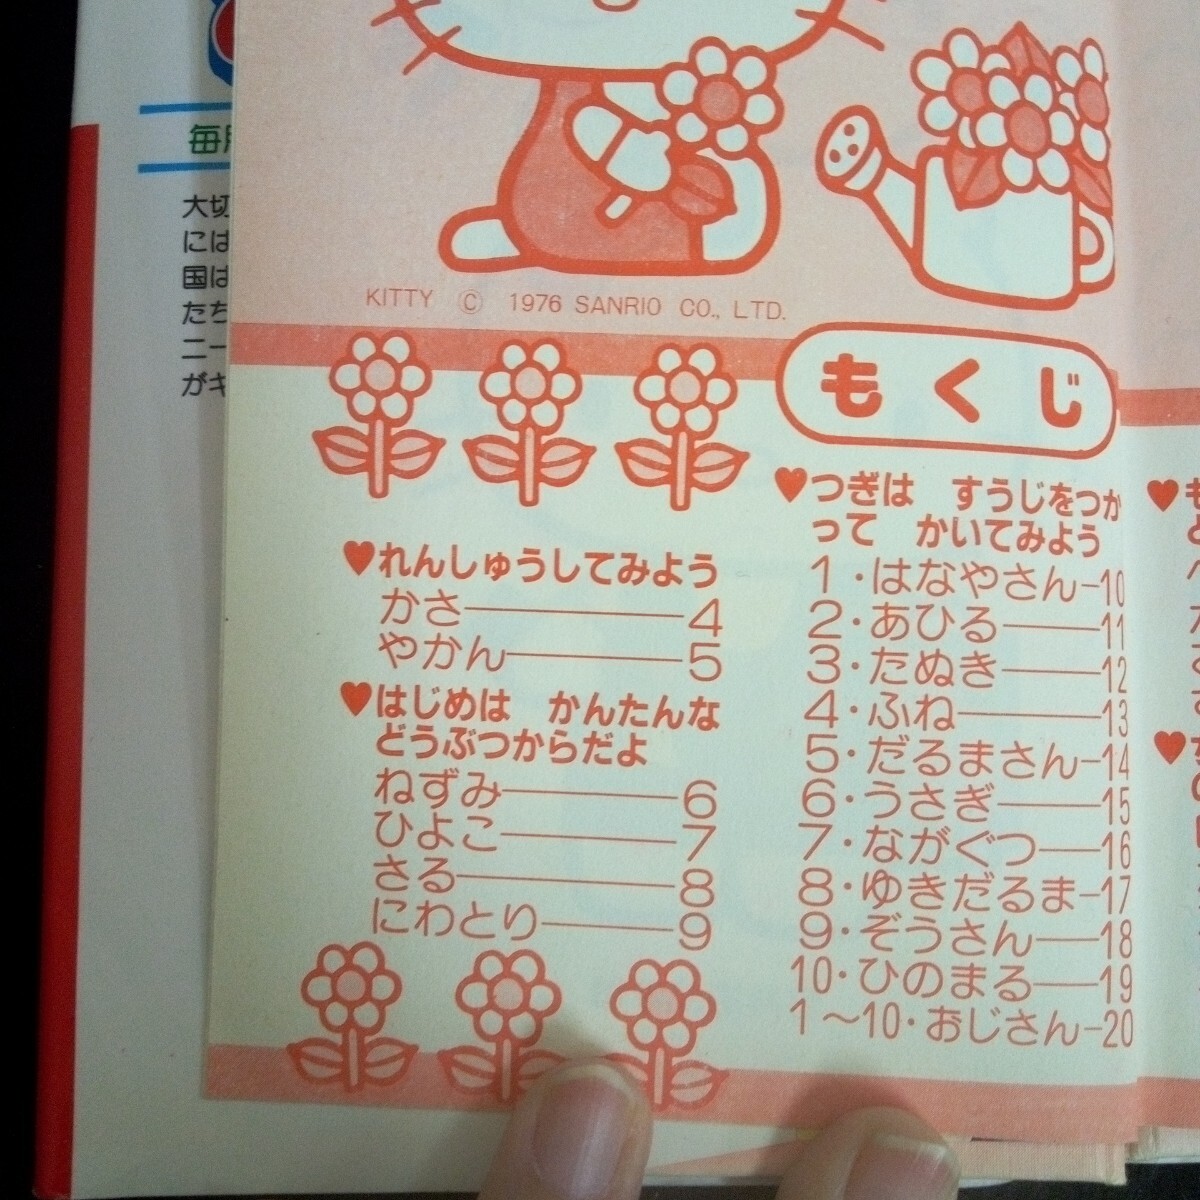 毎
大切
には
国は
たち
ニー
がキ
KITTY © 1976 SANRIO CO., LTD.
もくじ
♥れんしゅうしてみよう
かさ 4
やかん 5
♥はじめは かんたんな
どうぶつからだよ
ねずみ 6
ひよこ 7
さる 8
にわとり 9
♥つぎは すうじをつか
って かいてみよう
1・はなやさん 10
2・あひる 11
3・たぬき 12
4・ふね 13
5・だるまさん 14
6・うさぎ 15
7・ながぐつ 16
8・ゆきだるま 17
9・ぞうさん 18
10・ひのまる 19
1～10・おじさん 20